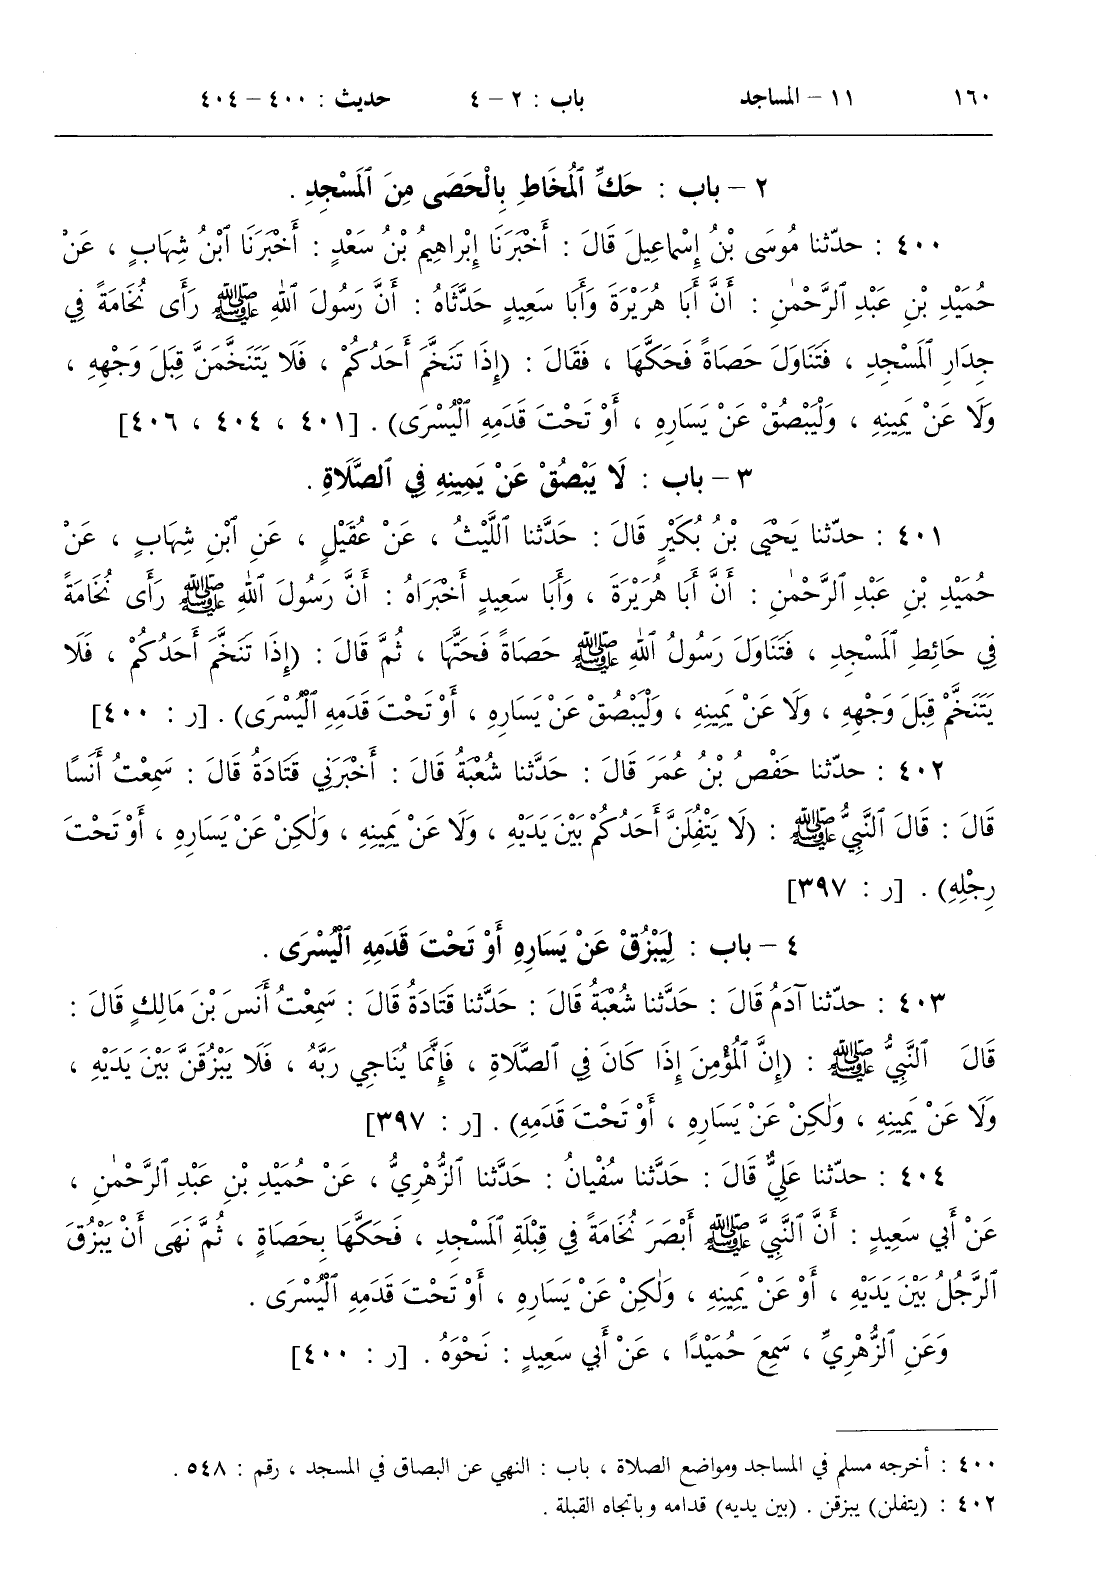 ١٦٠ ١١ – المساجد باب : ٢ – ٤ حديث : ٤٠٠ – ٤٠٤
٢ – باب : حَكِّ ٱلْمُخَاطِ بِالْحَصَى مِنَ ٱلْمَسْجِدِ .
٤٠٠ : حدّثنا مُوسَى بْنُ إِسْماعِيلَ قَالَ : أَخْبَرَنَا إِبْراهِيمُ بْنُ سَعْدٍ : أَخْبَرَنَا ٱبْنُ شِهَابٍ ، عَنْ
حُمَيْدِ بْنِ عَبْدِ ٱلرَّحْمٰنِ : أَنَّ أَبَا هُرَيْرَةَ وَأَبَا سَعِيدٍ حَدَّثَاهُ : أَنَّ رَسُولَ ٱللهِ ﷺ رَأَى نُخَامَةً فِي
جِدَارِ ٱلْمَسْجِدِ ، فَتَنَاوَلَ حَصَاةً فَحَكَّهَا ، فَقَالَ : (إِذَا تَنَخَّمَ أَحَدُكُمْ ، فَلَا يَتَنَخَّمَنَّ قِبَلَ وَجْهِهِ ،
وَلَا عَنْ يَمِينِهِ ، وَلْيَبْصُقْ عَنْ يَسَارِهِ ، أَوْ تَحْتَ قَدَمِهِ ٱلْيُسْرَى) . [٤٠١ ، ٤٠٤ ، ٤٠٦]
٣ – باب : لَا يَبْصُقْ عَنْ يَمِينِهِ فِي ٱلصَّلَاةِ .
٤٠١ : حدّثنا يَحْيَى بْنُ بُكَيْرٍ قَالَ : حَدَّثَنا ٱللَّيْثُ ، عَنْ عُقَيْلٍ ، عَنِ ٱبْنِ شِهَابٍ ، عَنْ
حُمَيْدِ بْنِ عَبْدِ ٱلرَّحْمٰنِ : أَنَّ أَبَا هُرَيْرَةَ ، وَأَبَا سَعِيدٍ أَخْبَرَاهُ : أَنَّ رَسُولَ ٱللهِ ﷺ رَأَى نُخَامَةً
فِي حَائِطِ ٱلْمَسْجِدِ ، فَتَنَاوَلَ رَسُولُ ٱللهِ ﷺ حَصَاةً فَحَتَّهَا ، ثُمَّ قَالَ : (إِذَا تَنَخَّمَ أَحَدُكُمْ ، فَلَا
يَتَنَخَّمْ قِبَلَ وَجْهِهِ ، وَلَا عَنْ يَمِينِهِ ، وَلْيَبْصُقْ عَنْ يَسَارِهِ ، أَوْ تَحْتَ قَدَمِهِ ٱلْيُسْرَى) . [ر : ٤٠٠]
٤٠٢ : حدّثنا حَفْصُ بْنُ عُمَرَ قَالَ : حَدَّثَنا شُعْبَةُ قَالَ : أَخْبَرَنِي قَتَادَةُ قَالَ : سَمِعْتُ أَنَسًا
قَالَ : قَالَ ٱلنَّبِيُّ ﷺ : (لَا يَتْفِلَنَّ أَحَدُكُمْ بَيْنَ يَدَيْهِ ، وَلَا عَنْ يَمِينِهِ ، وَلٰكِنْ عَنْ يَسَارِهِ ، أَوْ تَحْتَ
رِجْلِهِ) . [ر : ٣٩٧]
٤ – باب : لِيَبْزُقْ عَنْ يَسَارِهِ أَوْ تَحْتَ قَدَمِهِ ٱلْيُسْرَى .
٤٠٣ : حدّثنا آدَمُ قَالَ : حَدَّثَنا شُعْبَةُ قَالَ : حَدَّثَنا قَتَادَةُ قَالَ : سَمِعْتُ أَنَسَ بْنَ مَالِكٍ قَالَ :
قَالَ ٱلنَّبِيُّ ﷺ : (إِنَّ ٱلْمُؤْمِنَ إِذَا كَانَ فِي ٱلصَّلَاةِ ، فَإِنَّمَا يُنَاجِي رَبَّهُ ، فَلَا يَبْزُقَنَّ بَيْنَ يَدَيْهِ ،
وَلَا عَنْ يَمِينِهِ ، وَلٰكِنْ عَنْ يَسَارِهِ ، أَوْ تَحْتَ قَدَمِهِ) . [ر : ٣٩٧]
٤٠٤ : حدّثنا عَلِيٌّ قَالَ : حَدَّثَنا سُفْيَانُ : حَدَّثَنا ٱلزُّهْرِيُّ ، عَنْ حُمَيْدِ بْنِ عَبْدِ ٱلرَّحْمٰنِ ،
عَنْ أَبِي سَعِيدٍ : أَنَّ ٱلنَّبِيَّ ﷺ أَبْصَرَ نُخَامَةً فِي قِبْلَةِ ٱلْمَسْجِدِ ، فَحَكَّهَا بِحَصَاةٍ ، ثُمَّ نَهَى أَنْ يَبْزُقَ
ٱلرَّجُلُ بَيْنَ يَدَيْهِ ، أَوْ عَنْ يَمِينِهِ ، وَلٰكِنْ عَنْ يَسَارِهِ ، أَوْ تَحْتَ قَدَمِهِ ٱلْيُسْرَى .
وَعَنِ ٱلزُّهْرِيِّ ، سَمِعَ حُمَيْدًا ، عَنْ أَبِي سَعِيدٍ : نَحْوَهُ . [ر : ٤٠٠]
٤٠٠ : أخرجه مسلم في المساجد ومواضع الصلاة ، باب : النهي عن البصاق في المسجد ، رقم : ٥٤٨ .
٤٠٢ : (يتفلن) يبزقن . (بين يديه) قدامه وباتجاه القبلة .